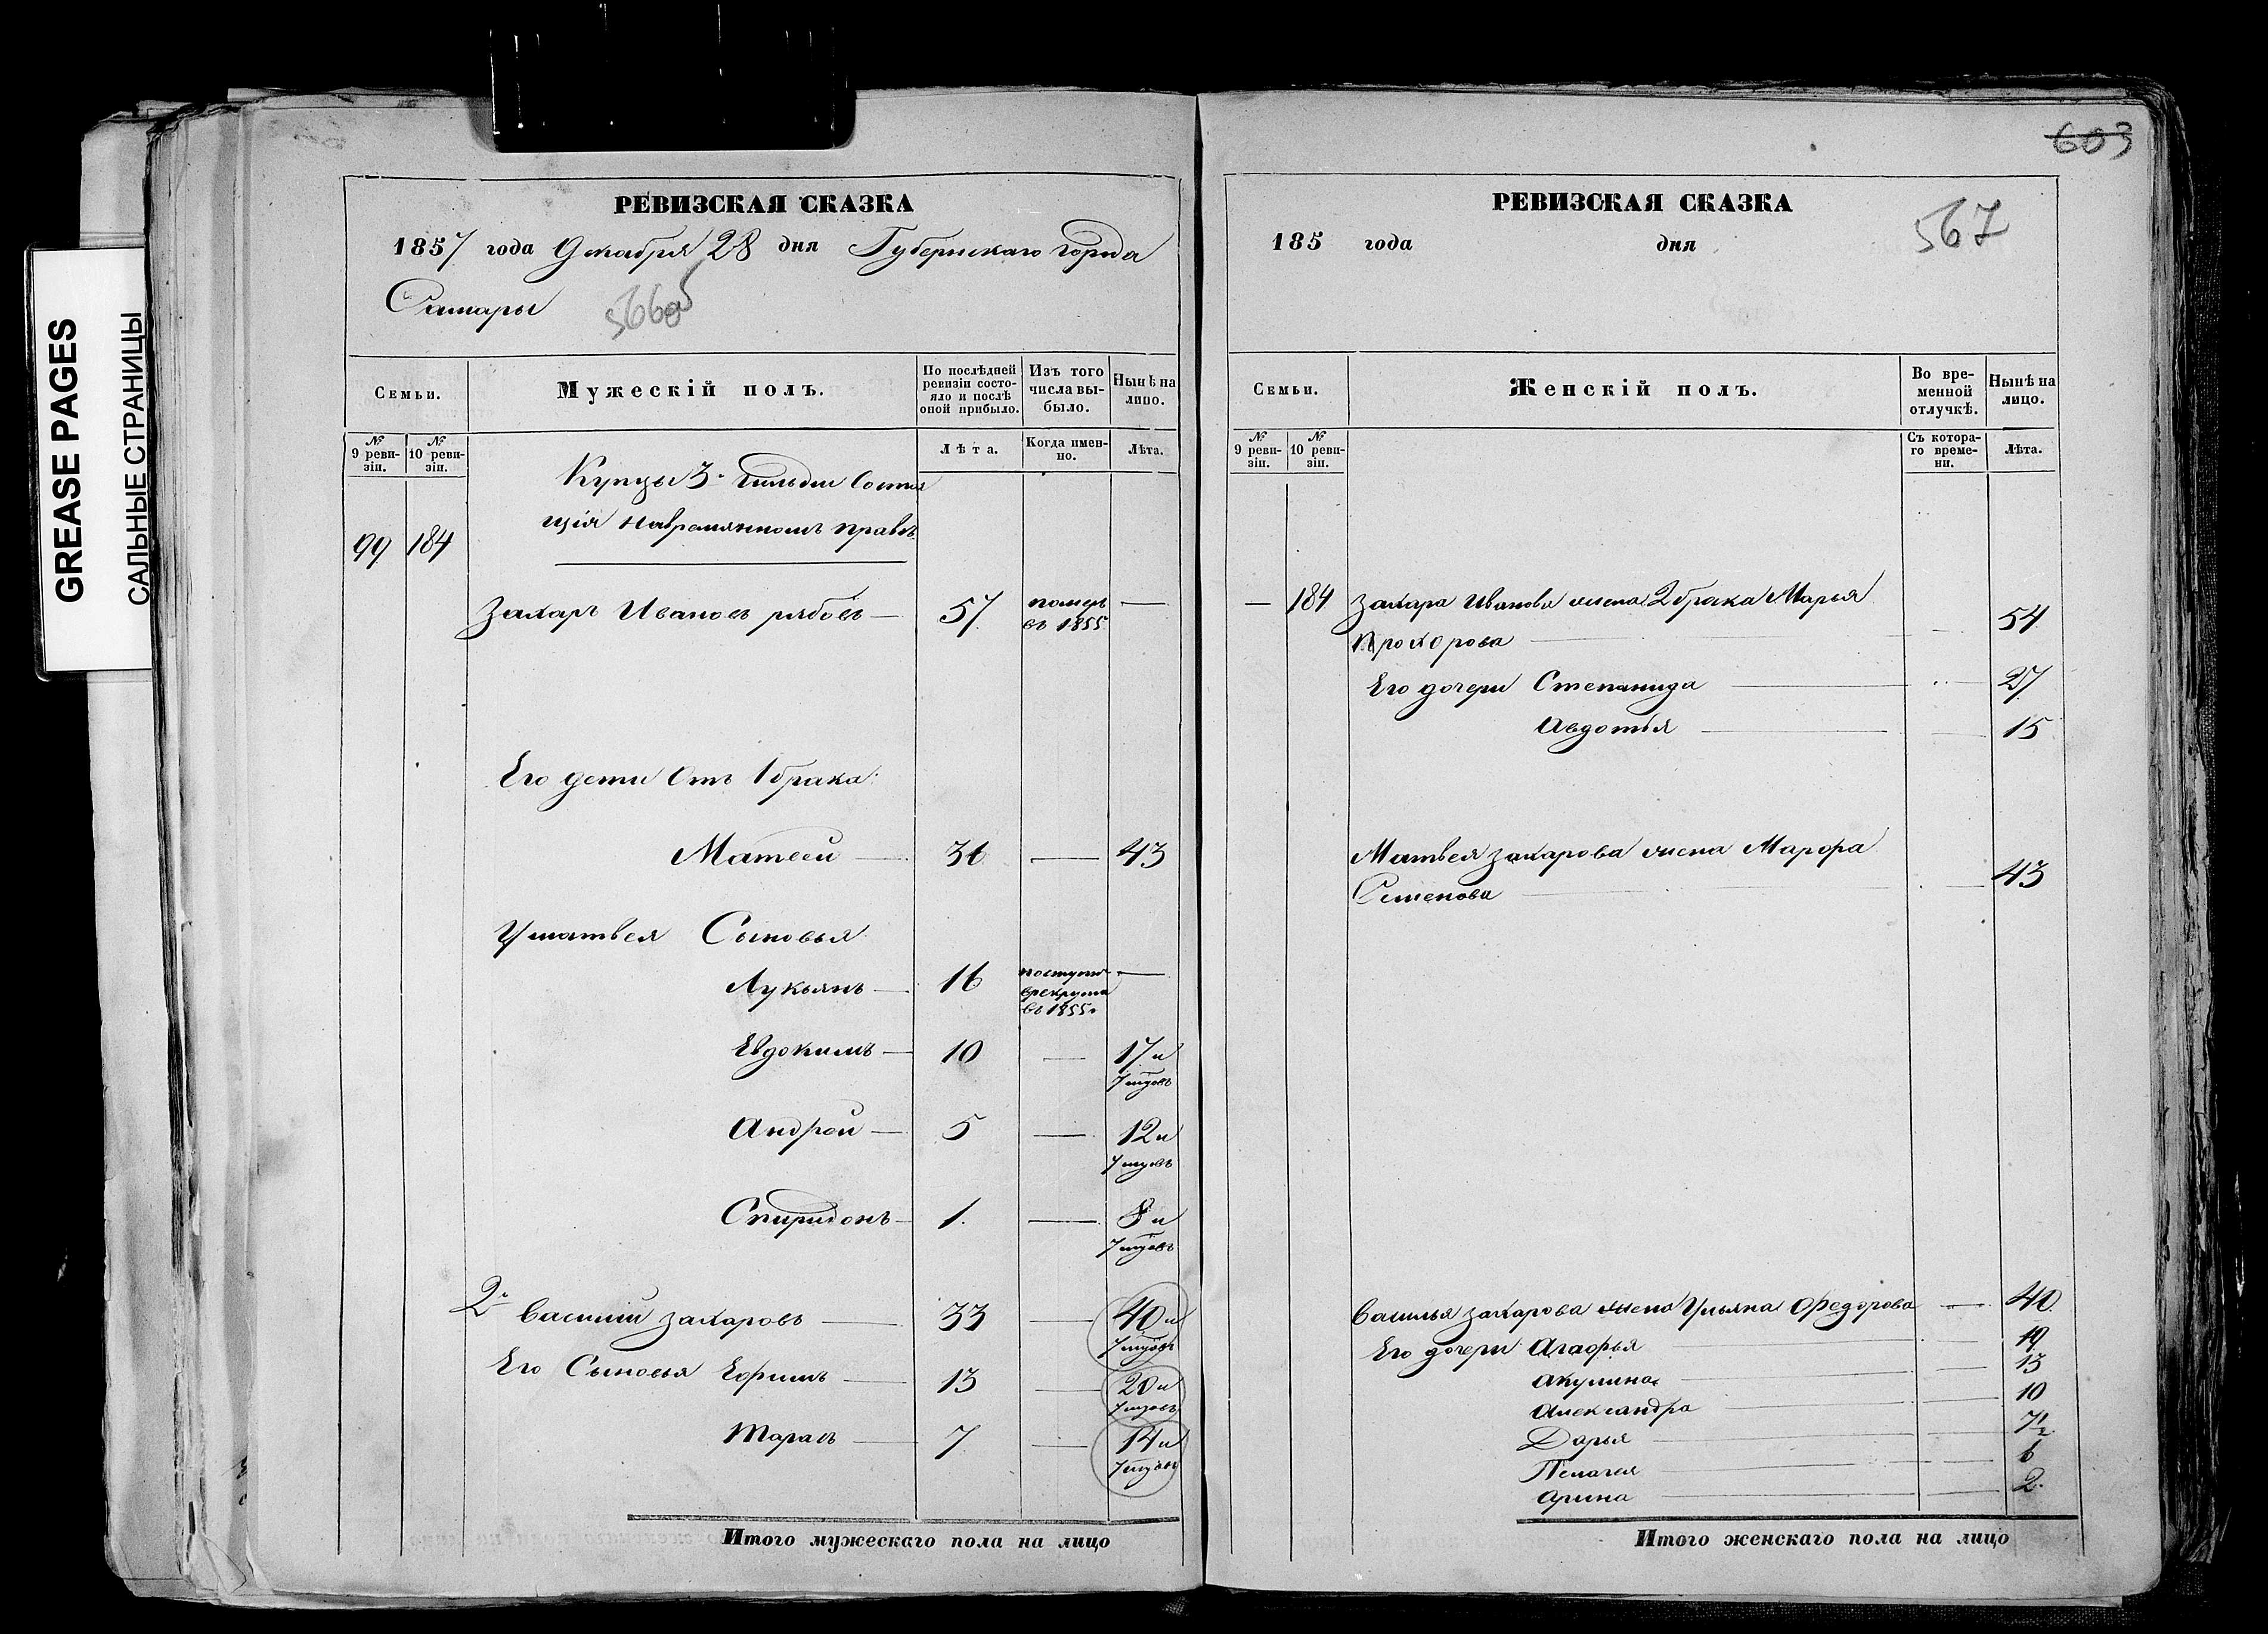 GREASE PAGES
САЛЬНЫЕ СТРАНИЦЫ
РЕВИЗСКАЯ СКАЗКА
1857 года Декабря 28 дня Губернскаго города
Самары
566об
Семьи.
Мужескій полъ.
По послѣдней ревизіи состояло и послѣ оной прибыло.
Изъ того числа выбыло.
Нынѣ на лицо.
№ 9 ревизіи.
№ 10 ревизіи.
Лѣта.
Когда именно.
Лѣта.
Купцы 3й Гильдіи Состоя
щія навремянномъ правѣ
99 184
Захаръ Ивановъ рябовъ — 57 померъ въ 1855 —
Его дети Отъ 1 брака:
Матвей — 36 — 43
Уматвея Сыновья
Лукьянъ — 16 поступи врекрута въ 1855г —
Евдокимъ — 10 — 17 и 7 мцовъ
Андрей — 5 — 12 и 7 мцовъ
Спиридонъ — 1. — 8 и 7 мцовъ
2й Василий Захаровъ — 33 — 40 и 7 мцовъ
Его Сыновья Ефимъ — 13 — 20 и 7 мцовъ
Тарасъ — 7 — 14 и 7 мцовъ
Итого мужескаго пола на лицо
603
РЕВИЗСКАЯ СКАЗКА
567
185 года дня
Семьи.
Женскій полъ.
Во временной отлучкѣ.
Нынѣ на лицо.
№ 9 ревизіи.
№ 10 ревизіи.
Съ котораго времени.
Лѣта.
— 184 Захара Иванова жена 2 брака Марья
Прохорова — 54
Его дочери Степанида — 27
Авдотья — 15
Матвея Захарова жена Марфа
Семенова — 43
Василья Захарова жена Ульяна Федорова — 40
Его дочери Агафья — 19
Акулина — 13
Александра — 10
Дарья — 7½
Пелагея — 6
Арина — 2.
Итого женскаго пола на лицо